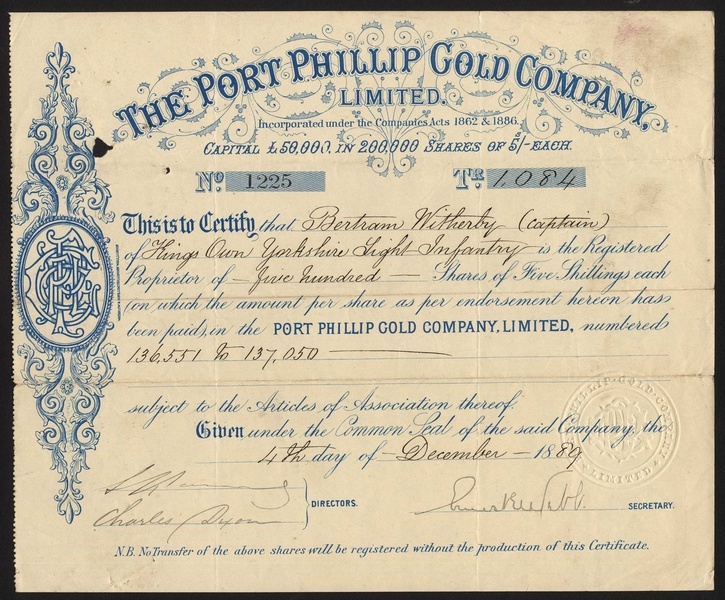 THE PORT PHILLIP GOLD COMPANY,
LIMITED.
Incorporated under the Companies Acts 1862 & 1886.
CAPITAL £50,000, IN 200,000 SHARES OF 5/- EACH.
No 1225 Tr 1.084
This is to Certify that Bertram Witherby (Captain)
of Kings Own Yorkshire Light Infantry is the Registered
Proprietor of — five hundred — Shares of Five Shillings each
(on which the amount per share as per endorsement hereon has
been paid), in the PORT PHILLIP GOLD COMPANY, LIMITED, numbered
136,551 to 137,050
subject to the Articles of Association thereof.
Given under the Common Seal of the said Company, the
4th day of — December — 1889
DIRECTORS.
Charles Dixon
SECRETARY.
PHILLIP GOLD COMPANY
LIMITED
N.B. No Transfer of the above shares will be registered without the production of this Certificate.